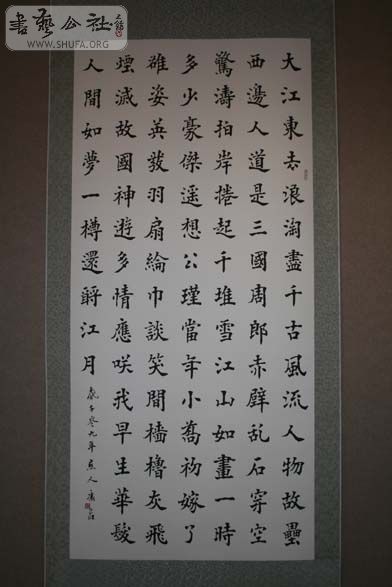 書藝公社
WWW.SHUFA.ORG
大江東去浪淘盡千古風流人物故壘
西邊人道是三國周郎赤壁乱石穿空
驚濤拍岸捲起千堆雪江山如畫一時
多少豪傑遥想公瑾當年小喬初嫁了
雄姿英發羽扇綸巾談笑間檣櫓灰飛
煙滅故國神遊多情應咲我早生華髮
人間如夢一樽還酹江月
歲于零九年